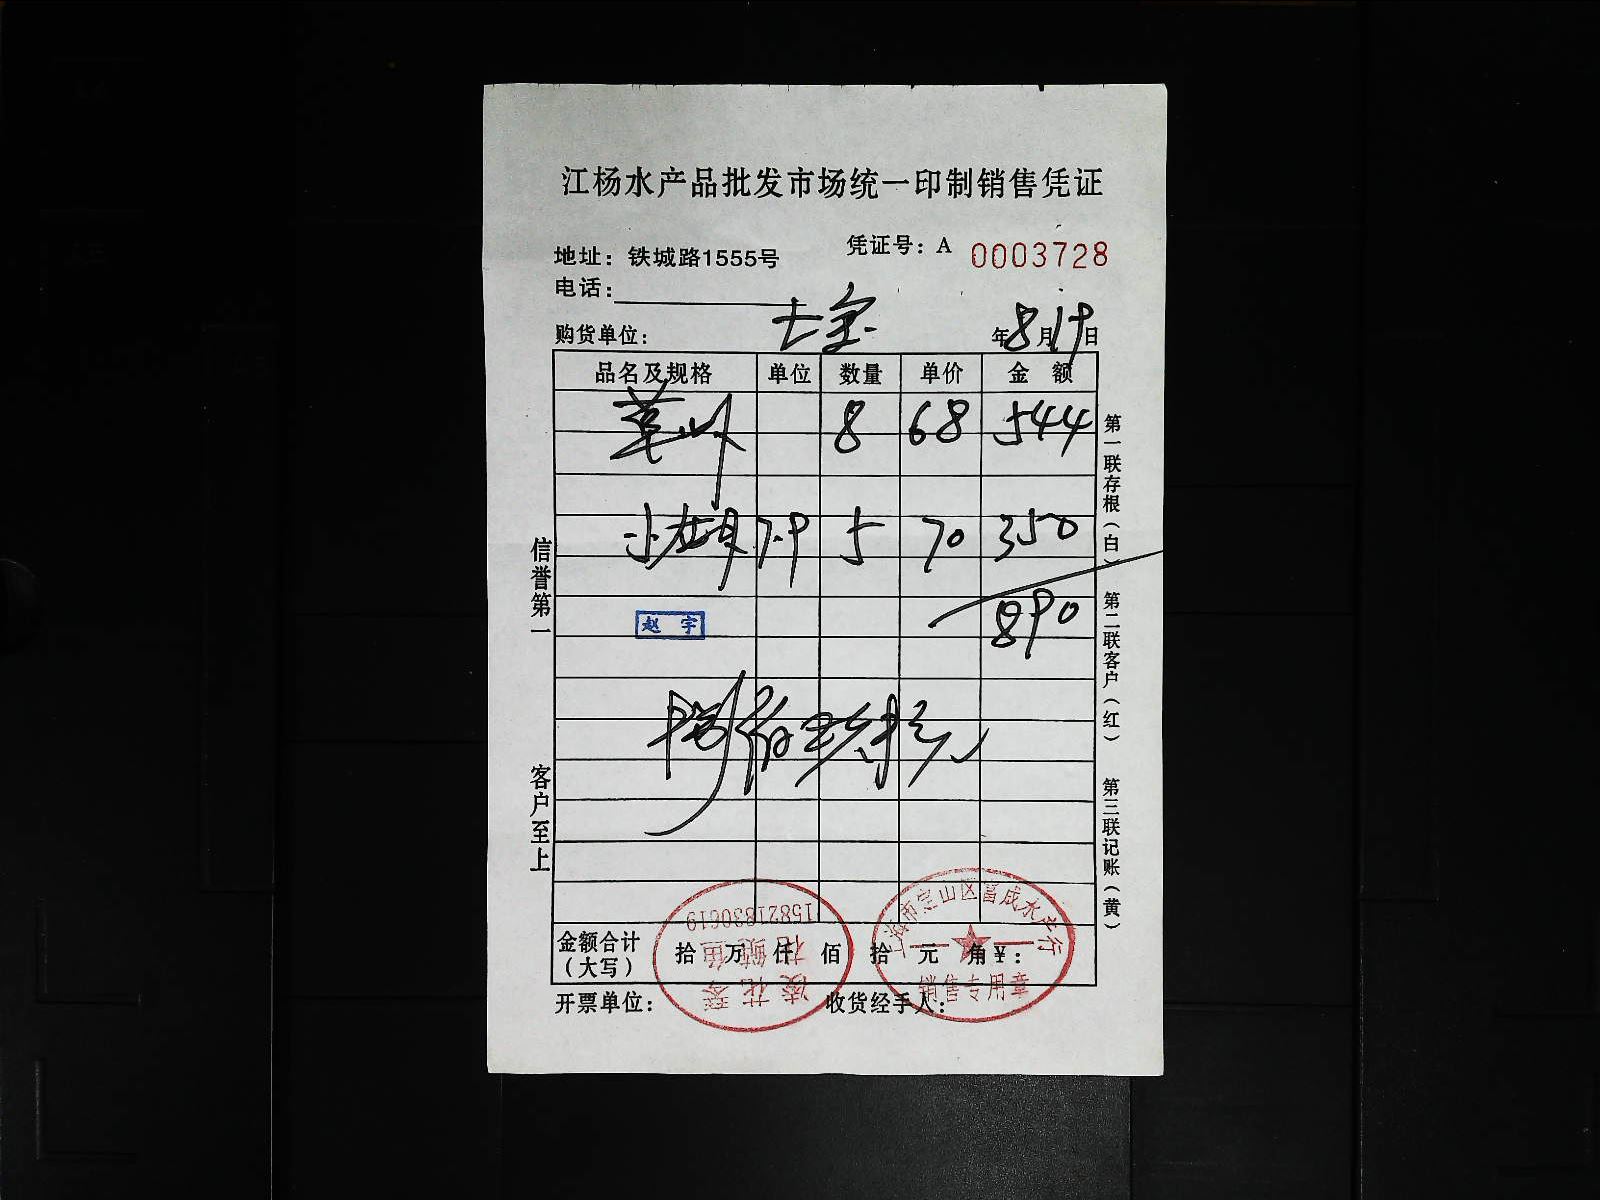 江杨水产品批发市场统一印制销售凭证
地址：铁城路1555号
凭证号：A 0003728
电话：
购货单位：
年8月19日
品名及规格 单位 数量 单价 金额
草 8 68 544
小 7.9 5 70 350
890
赵宇
信誉第一
客户至上
第一联存根（白） 第二联客户（红） 第三联记账（黄）
金额合计（大写） 拾 万 仟 佰 拾 元 角 ¥：
开票单位： 收货经手人：
15821830619
上海市宝山区昌成水产行
销售专用章